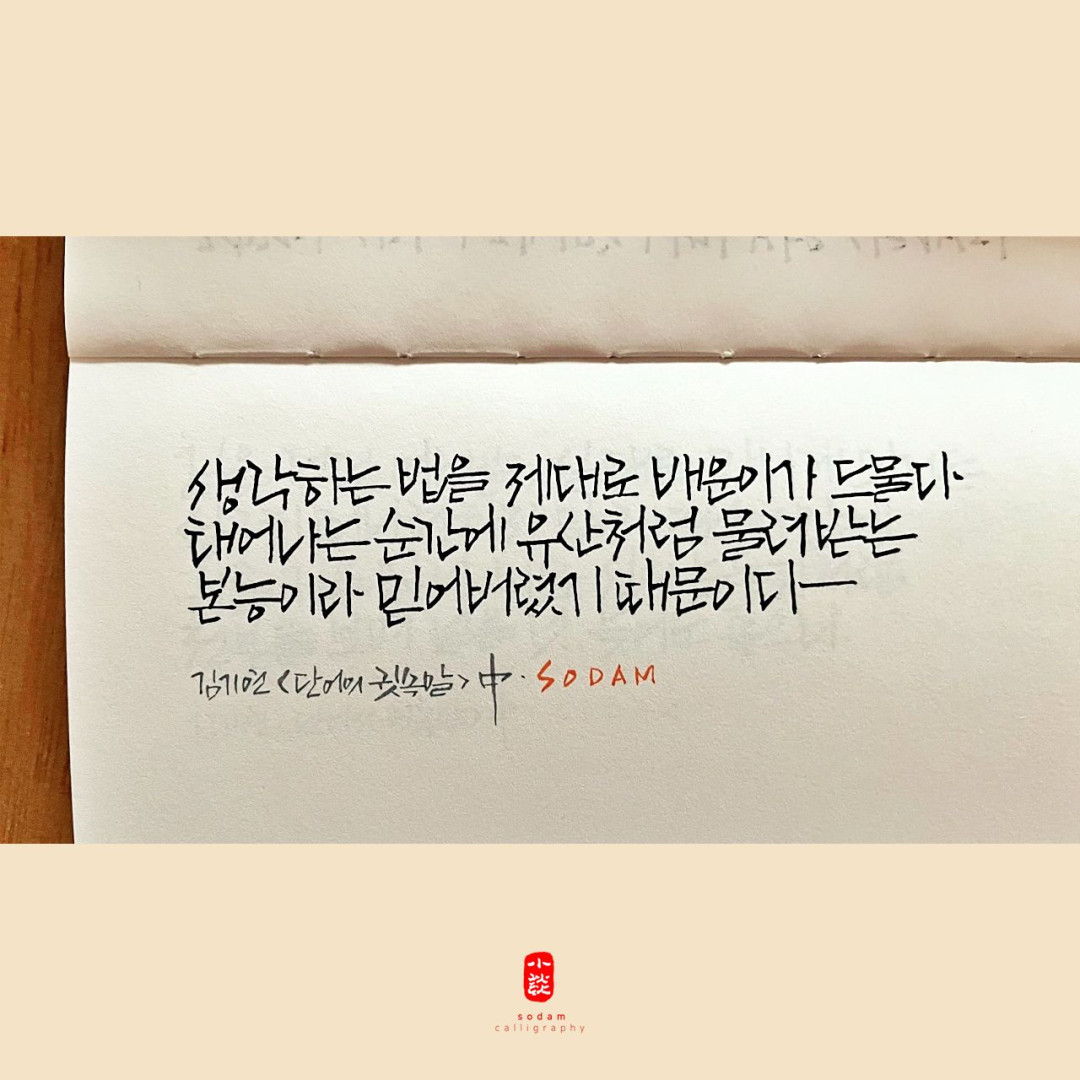 생각하는 법을 제대로 배운이가 드물다.
태어나는 순간에 유산처럼 물려받는
본능이라 믿어버렸기 때문이다—
김기현 <단어의 귓속말> 中. SODAM
sodam
calligraphy